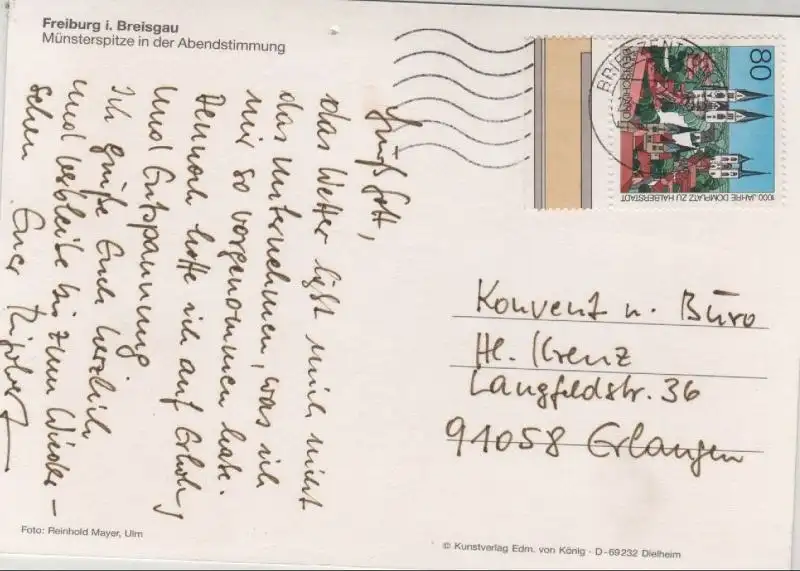 Freiburg i. Breisgau
Münsterspitze in der Abendstimmung
Grüß Gott,
das Wetter läßt mich nicht
das Unternehmen, was ich
mir so vorgenommen habe.
Dennoch hoffe ich auf Erholung
und Entspannung
Ich grüße Euch herzlich
und verbleibe bis zum Wieder-
sehen Euer
BRIEFZENTRUM
80
DEUTSCHLAND
1000 JAHRE DOMPLATZ ZU HALBERSTADT
Konvent u. Büro
Hl. Kreuz
Langfeldstr. 36
91058 Erlangen
Foto: Reinhold Mayer, Ulm
© Kunstverlag Edm. von König · D-69232 Dielheim